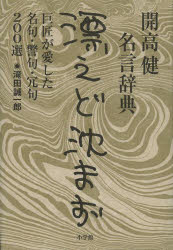 開高健
名言辞典
漂えど沈まず
巨匠が愛した
名句・警句・冗句
200選
●滝田誠一郎
小学館